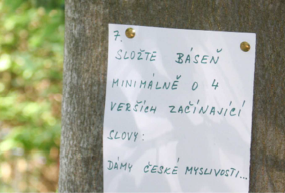 7.
SLOŽTE BÁSEŇ
MINIMÁLNĚ O 4
VERŠÍCH ZAČÍNAJÍCÍ
SLOVY:
DÁMY ČESKÉ MYSLIVOSTI...